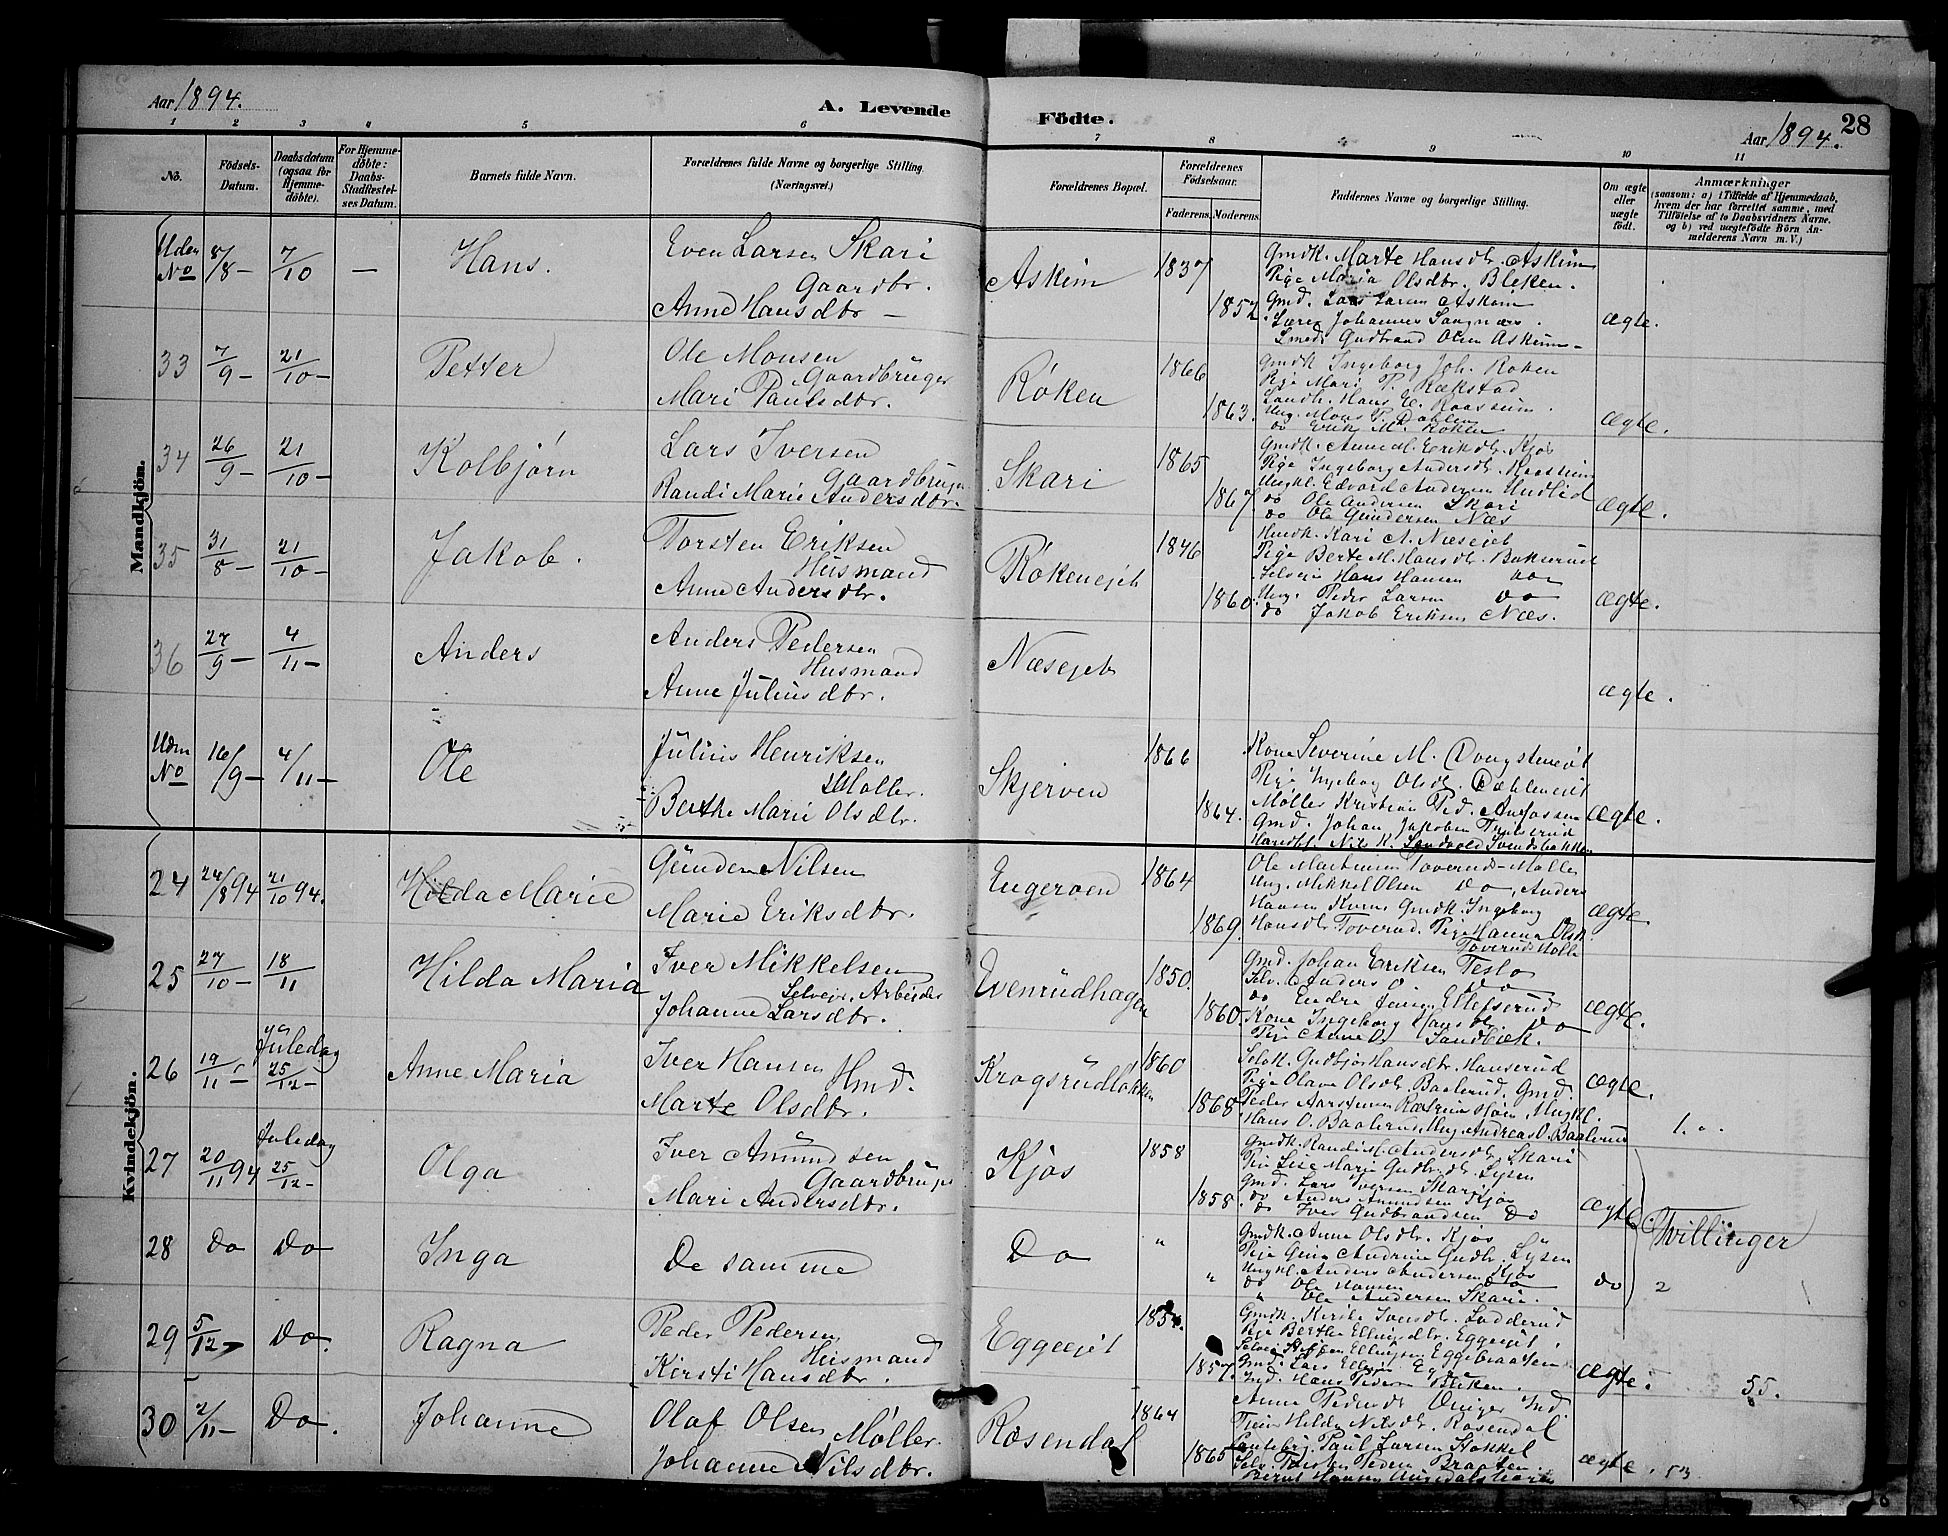 Aar 1894.
A. Levende
Födte.
Aar 1894.
28
1 2 3 4 5 6 7 8 9 10 11
No.
Födsels-
Datum.
Daabsdatum
(ogsaa for
Hjemme-
döbte).
For Hjemme-
döbte:
Daabs-
Stadfæstel-
ses Datum.
Barnets fulde Navn.
Forældrenes fulde Navne og borgerlige Stilling.
(Næringsvei.)
Forældrenes Bopæl.
Forældrenes
Födselsaar.
Faderens.
Moderens.
Faddernes Navne og borgerlige Stilling.
Om ægte
eller
uægte
födt.
Anmærkninger
(saasom: a) i Tilfælde af Hjemmedaab,
hvem der har forrettet samme, med
Tilföielse af to Daabsvidners Navne.
og b) ved uægtefödte Börn An-
melderens Navn m. V.)
Mandkjön.
Uden
No
8/8 -
7/10
-
Hans.
Even Larsen Skari
Gaardbr.
Anne Hansdtr -
Askim
1837
1852
Gmdk. Marte Hansdtr. Askim
Pige Maria Olsdtr. Bleken.
Gmd. Lars Larsen Askim
Lærer Johannes
Smed Gudbrand Olsen Askim -
ægte.
33
7/9 -
21/10 -
Petter
Ole Monsen
Gaardbruger
Mari Paulsdtr.
Røken
1866
1863.
Gmdk Ingeborg Joh. Røken
Pige Mari P. Rækstad
Landh. Hans E. Kaassum.
Ung. Mons P. Dahlen
do Erik M. Røken
ægte.
34
26/9 -
21/10 -
Kolbjørn
Lars Iversen
Gaardbruger
Randi Marie Andersdtr.
Skari
1865
1867.
Gmdk. Anne M. Eriksdtr. Kjøs
Pige Ingeborg Andersdtr.
Ungkl. Edvard Andersen
do Ole Andersen Skari
do Ole Gundersen Næs
ægte.
35
31/8 -
21/10 -
Jakob.
Torsten Eriksen
Husmand
Anne Andersdtr.
Røkenejet
1846
1860.
Husdk. Kari A. Næsejet
Pige Berte M. Hansdtr. Bakserud
Selveier Hans Hansen do
Ung. Peder Larsen do
do Jakob Eriksen Næs.
ægte.
36
27/9 -
4/11 -
Anders
Anders Pedersen
Husmand
Anne Juliusdtr.
Næsejet
ægte.
Uden
No
16/9 -
4/11 -
Ole
Julius Henriksen
Møller.
Berthe Marie Olsdtr.
Skjerven
1866
1864.
Kone Severine M.
Pige Ingeborg Olsdtr.
Møller Kristian Ped.
Gmd. Johan Jakobsen
Nils K.
ægte.
Kvindekjön.
24
24/8 94
21/10 94.
Hilda Marie
Gunder Nilsen
Marie Eriksdtr.
Engeroen
1864
1869.
Ole Martinsen Toverud - Mølle
Ung. Mikkel Olsen do, Anders
Hansen Gmdk. Ingeborg
Hansdtr. Toverud. Pige Hanna Olsdtr.
Toverud Mølle
ægte.
25
27/10 -
18/11
Hilda Maria
Iver Mikkelsen
Selveier, Arbeider
Johanne Larsdtr.
Evenrudhagen
1850.
1860.
Gmd. Johan Eriksen Teslo
Selv. Anders O. do
do Endre Jensen Ellefserud
Kone Ingeborg Hansdtr. do
Pige Anne O. Sandbæk.
ægte.
26
19/11 -
Juledag
25/12 -
Anne Maria
Iver Hansen
Hmd.
Marte Olsdtr.
Krogsrudløkken
1860
1868.
Selvk. Gudbjør Hansdtr. Hanserud
Pige Olava Olsdtr. Baalerud, Gmd.
Peder Ungkl.
Hans O. Baalerud, Ung. Andreas O. Baalerud
ægte.
1.
27
20/11 94
Juledag
25/12 -
Olga
Iver Amundsen
Gaardbruger
Mari Andersdtr.
Kjøs
1858
1858.
Gmdk. Randi M. Andersdtr. Skari
Pige Lise Marie Gudbr.dtr. Lysen
Gmd. Lars Iversen Skari
do Anders Amundsen Kjøs
do Iver Gudbrandsen do
ægte
Tvillinger
2
28
Do
Do
Inga
De samme
Do
"
"
Gmdk. Anne Olsdtr. Kjøs
Pige Gina Andrine Gudbr. Lysen
Ungkl. Anders Andersen Kjøs
do Ole Hansen do
" Ole Andersen Skari.
do
29
5/12 -
Do.
Ragna
Peder Pedersen
Husmand
Kirsti Hansdtr.
Eggeejet
1854.
1857.
Gmdk. Kirsti Iversdtr. Ladderud
Pige Berthe Ellingsdtr. Eggeejet,
Ellingsen Eggebraaten
Gmd. Lars Ellings. Eg
Ind. Hans Peders. Bleken.
ægte.
55.
30
2/11 -
Do.
Johanne
Olaf Olsen
Møller.
Johanne Nilsdtr.
Rosendal
1864
1865
Anne Pedersdtr.
Hilda Nilsdtr. Rosendal
Paul Larsen Stokkel
Selv. Torsten Peders. Braaten.
Bernt Hansen
ægte.
53